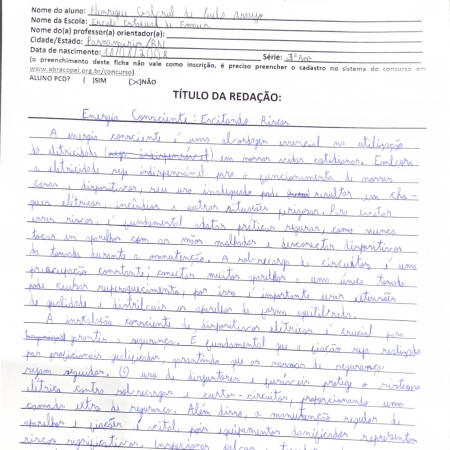 Nome do aluno: Henrique Gabriel de Paula Araujo
Nome da Escola: Escola estadual de Ensino
Nome do(a) professor(a) orientador(a):
Cidade/Estado: Parnamirim/RN
Data de nascimento: 11/01/2008 Série: 3ª Ano
(o preenchimento deste ficha não vale como inscrição, é preciso preencher o cadastro no sistema do concurso em
www.abracopel.org.br/concurso)
ALUNO PCD? ( )SIM (X)NÃO
TÍTULO DA REDAÇÃO:
Energia Consciente: Evitando Riscos
A energia consciente é uma abordagem essencial na utilização
da eletricidade (seja indispensável) em nossas vidas cotidianas. Embora
a eletricidade seja indispensável para o funcionamento de nossas
casas e dispositivos, seu uso inadequado pode resultar em cho-
ques elétricos, incêndios e outras situações perigosas. Para evitar
esses riscos, é fundamental adotar práticas seguras, como nunca
tocar em aparelhos com as mãos molhadas e desconectar dispositivos
da tomada durante a manutenção. A sobrecarga de circuitos é uma
preocupação constante; conectar muitos aparelhos a uma única tomada
pode causar superaquecimento, por isso é importante usar extensões
de qualidade e distribuir os aparelhos de forma equilibrada.
A instalação consciente de dispositivos elétricos é crucial para
garantir a segurança. É fundamental que a fiação seja realizada
por profissionais qualificados garantindo que as normas de segurança
sejam seguidas. O uso de disjuntores e fusíveis protege o sistema
elétrico contra sobrecargas e curtos-circuitos, proporcionando uma
camada extra de segurança. Além disso, a manutenção regular de
aparelhos e fiações é vital, pois equipamentos danificados representam
riscos significativos. Inspecionar cabos e